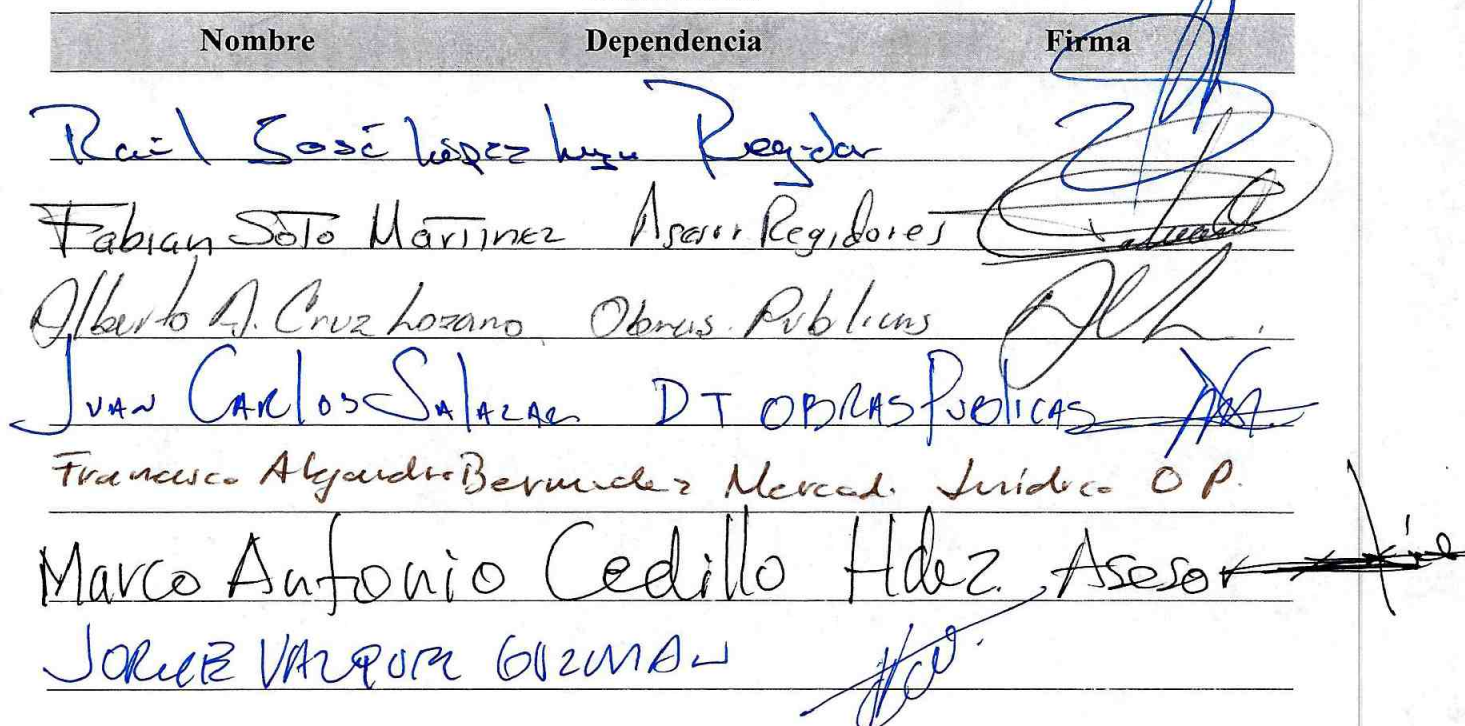 Nombre Dependencia Firma
Raúl José López Lugo Regidor
Fabian Soto Martinez Asesor Regidores
Alberto A. Cruz Lozano Obras Publicas
JUAN CARLOS SALAZAR DT OBRAS PUBLICAS
Francisco Alejandro Bermudez Mercad. Jurídico O P.
Marco Antonio Cedillo Hdez. Asesor
JORGE VAZQUEZ GUZMAN